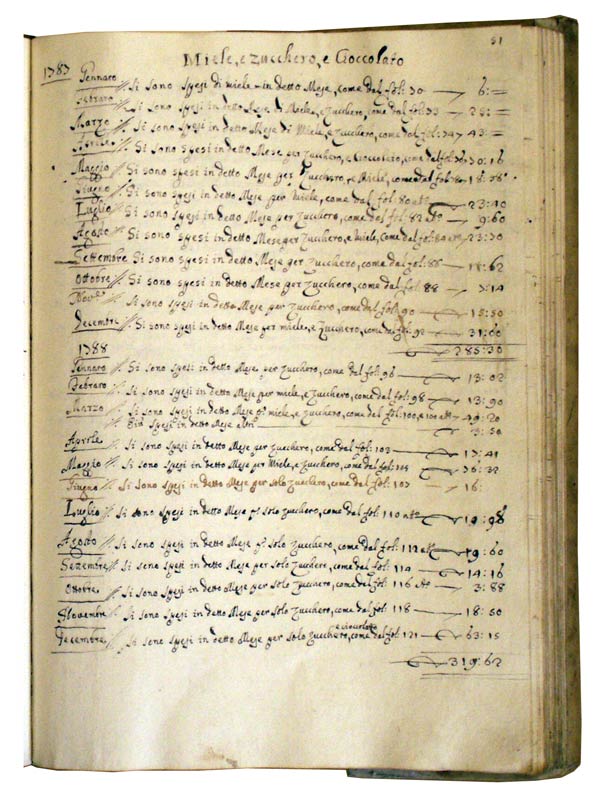 51
Miele, e zucchero, e Cioccolato
1787
Gennaro // Si sono spesi di miele in detto Mese, come dal fol: 30 6: =
Febraro // Si sono spesi in detto Mese di Miele, e Zucchero, come dal fol: 33 28: =
Marzo // Si sono spesi in detto Mese di Miele, e zucchero, come dal fol: 34 43: =
Aprile // Si sono spesi in detto Mese per Zucchero, e Cioccolato, come dal fol: 30:16
Maggio // Si sono spesi in detto Mese per Zucchero, e Miele, come dal fol: 18:78
Giugno // Si sono spesi in detto Mese per Miele, come dal fol: 80 23:40
Luglio // Si sono spesi in detto Mese per Zucchero, come dal fol: 82 9:60
Agosto // Si sono spesi in detto Mese per Zucchero, e Miele, come dal fol: 23:30
Settembre Si sono spesi in detto Mese per Zucchero, come dal fol: 86 18:62
Ottobre // Si sono spesi in detto Mese per Zucchero, come dal fol: 88 5:14
Nov.e // Si sono spesi in detto Mese per Zucchero, come dal fol: 90 15:50
Decembre // Si sono spesi in detto Mese per miele, e Zucchero, come dal fol: 92 31:60
285:30
1788
Gennaro // Si sono spesi in detto Mese per Zucchero, come dal fol: 96 13:02
Febraro // Si sono spesi in detto Mese per miele, e Zucchero, come dal fol: 98 13:90
Marzo // Si sono spesi in detto Mese per miele, e Zucchero, come dal fol: 100, e 49:20
Più spesi in detto Mese altri 3:50
Aprile // Si sono spesi in detto Mese per Zucchero, come dal fol: 102 17:41
Maggio // Si sono spesi in detto Mese per Miele, e Zucchero, come dal fol: 104 36:32
Giugno // Si sono spesi in detto Mese per solo Zucchero, come dal fol: 107 16:
Luglio // Si sono spesi in detto Mese p. solo zucchero, come dal fol: 110 19:98
Agosto // Si sono spesi in detto Mese p. solo zucchero, come dal fol: 112 19:60
Settembre // Si sono spesi in detto Mese per solo Zucchero, come dal fol: 114 14:16
Ottobre // Si sono spesi in detto Mese per solo Zucchero, come dal fol: 116 3:88
Novembre // Si sono spesi in detto Mese per solo Zucchero, come dal fol: 118 18:50
Decembre // Si sono spesi in detto Mese per solo Zucchero, e cioccolato come dal fol: 121 63:15
319:62